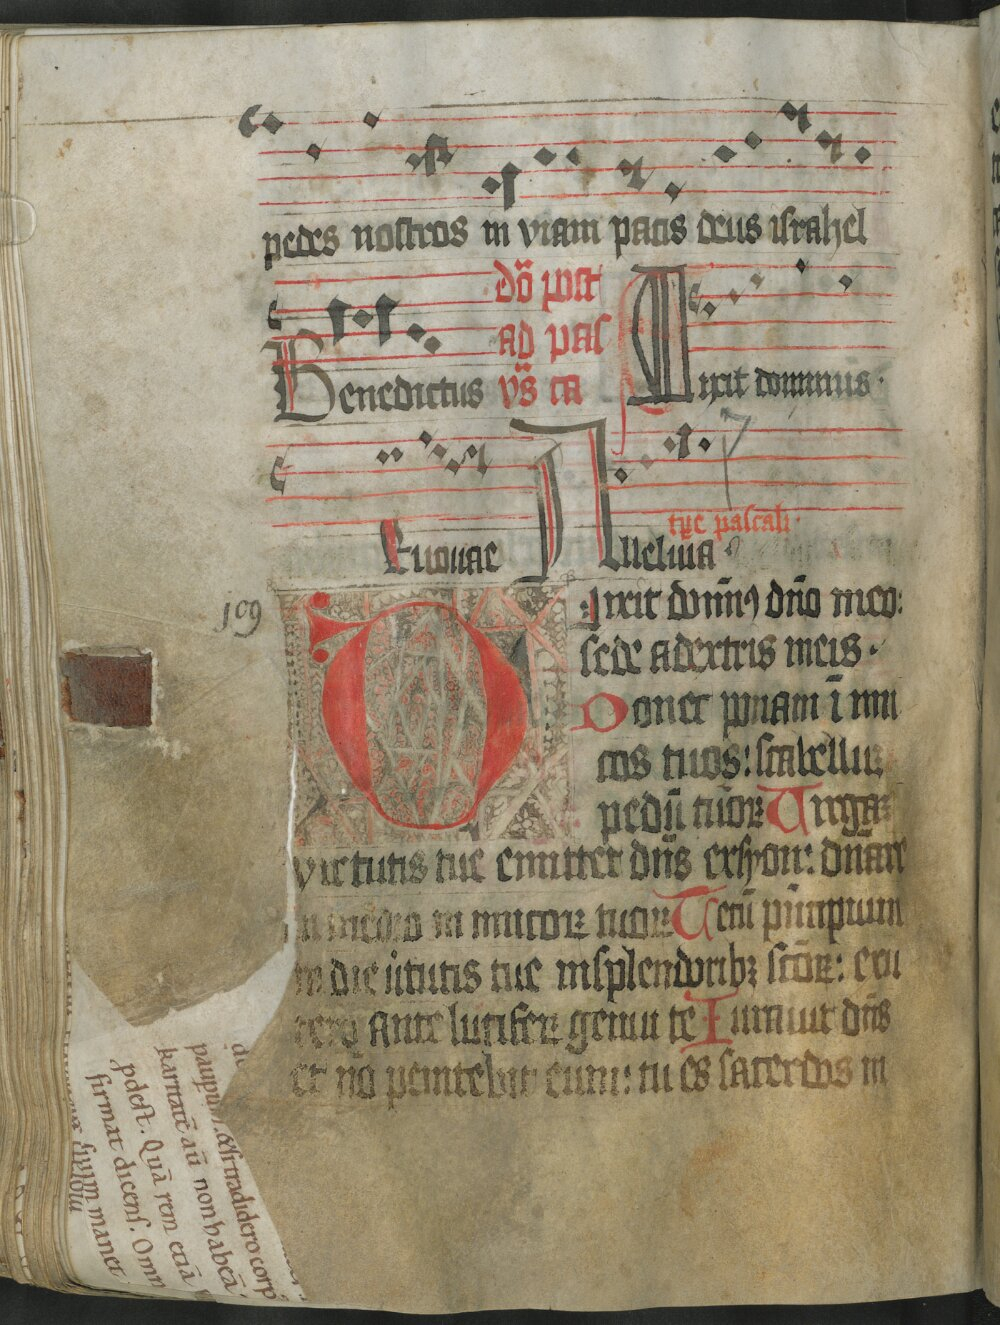 pedes nostros in viam pacis deus israhel
dō post
ad pas
Benedictus v̄s ca Dixit dominus.
t̄pe pascali.
Euouae Alleluia
109
Dixit domin⁹ dño meo:
sede adextris meis.
Donec ponam ī imi
cos tuos: scabellū
pedū tuoꝝ Uirgā
virtutis tue emittet dñs exsyon: dñare
in medio in imicoꝝ tuoꝝ Tecū pⁱncipium
in die ūtutis tue insplendoribꝫ sctōꝝ: exu
tero ante luciferū genui te Iurauit dñs
et nō penitebit eum: tu es sacerdos in
karitatē aū non habeā
pdest. Quā rem etiā
firmat dicens. Omn
manet